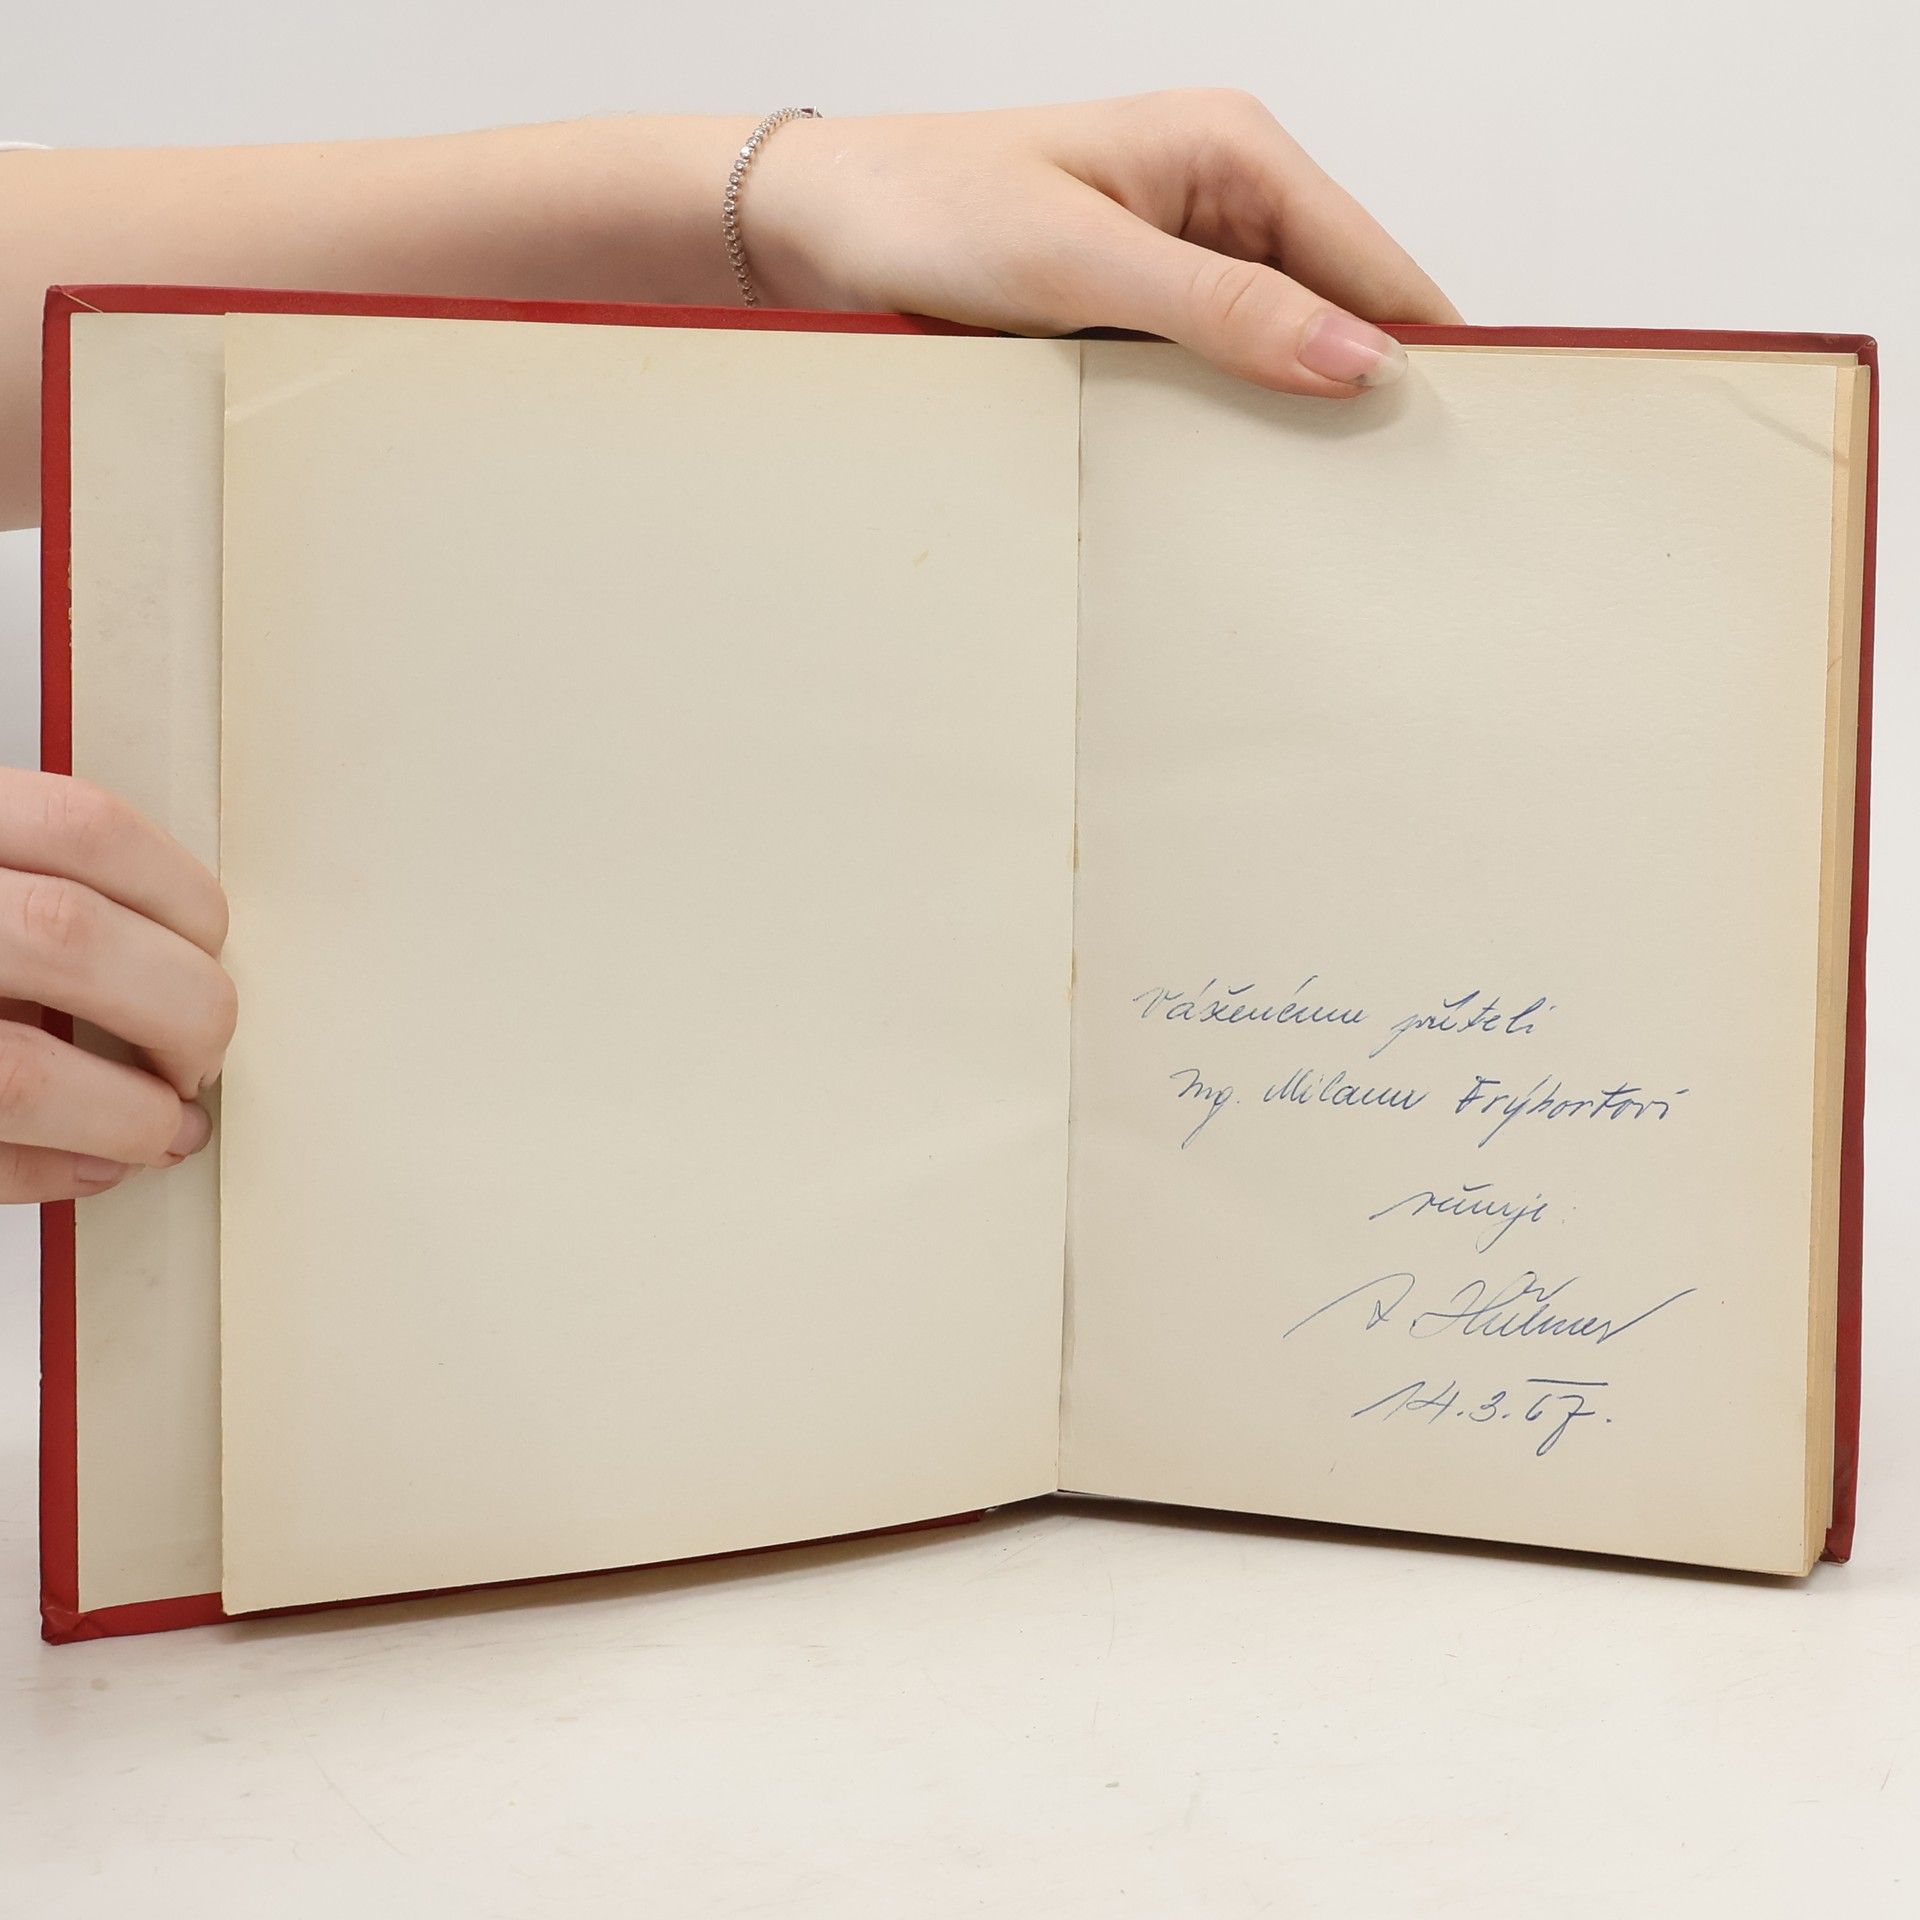 Váženému příteli
Ing. Milanu Frýbortovi
věnuje:
14.3.67.